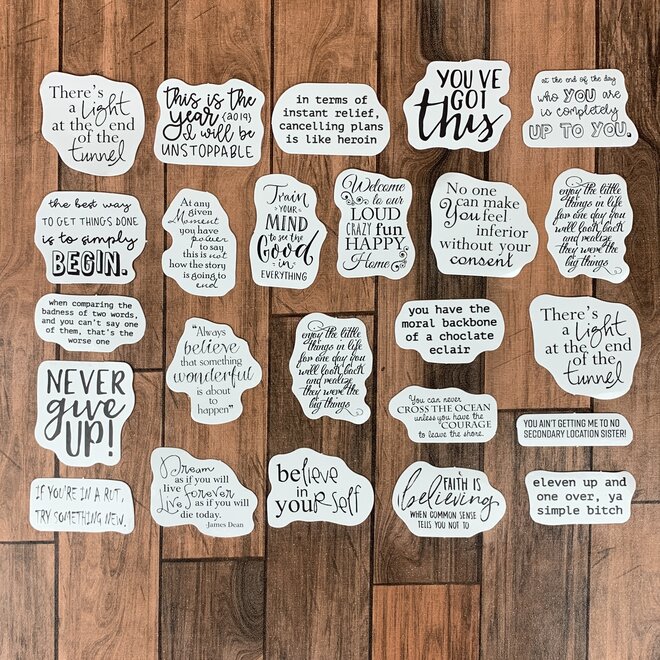 There's
a light
at the end
of the
tunnel
this is the
year (2019)
I will be
UNSTOPPABLE
in terms of
instant relief,
cancelling plans
is like heroin
YOU'VE
GOT
this
at the end of the day
who YOU are
is completely
UP TO YOU.
the best way
TO GET THINGS DONE
is to simply
BEGIN.
At any
given
Moment
you have
power
to say
this is not
how the story
is going to
end
Train
YOUR
MIND
to see the
Good
in
EVERYTHING
Welcome
to our
LOUD
CRAZY fun
HAPPY
Home
No one
can make
You feel
inferior
without your
consent
enjoy the little
things in life
for one day you
will look back
and realize
they were the
big things
when comparing the
badness of two words,
and you can't say one
of them, that's the
worse one
"Always
believe
that something
wonderful
is about
to happen"
enjoy the little
things in life
for one day you
will look back
and realize
they were the
big things
you have the
moral backbone
of a choclate
eclair
There's
a light
at the end
of the
tunnel
NEVER
give
UP!
You can never
CROSS THE OCEAN
unless you have the
COURAGE
to leave the shore.
YOU AIN'T GETTING ME TO NO
SECONDARY LOCATION SISTER!
IF YOU'RE IN A RUT,
TRY SOMETHING NEW.
Dream
as if you will
live forever
Live as if you will
die today.
-James Dean
believe
in
yourself
FAITH IS
believing
WHEN COMMON SENSE
TELLS YOU NOT TO
eleven up and
one over, ya
simple bitch